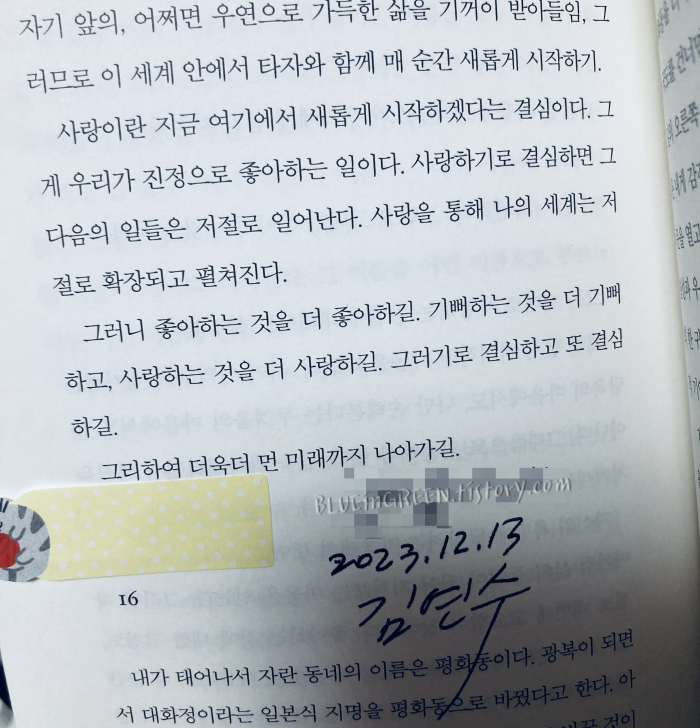 자기 앞의, 어쩌면 우연으로 가득한 삶을 기꺼이 받아들임, 그
러므로 이 세계 안에서 타자와 함께 매 순간 새롭게 시작하기.
사랑이란 지금 여기에서 새롭게 시작하겠다는 결심이다. 그
게 우리가 진정으로 좋아하는 일이다. 사랑하기로 결심하면 그
다음의 일들은 저절로 일어난다. 사랑을 통해 나의 세계는 저
절로 확장되고 펼쳐진다.
그러니 좋아하는 것을 더 좋아하길. 기뻐하는 것을 더 기뻐
하고, 사랑하는 것을 더 사랑하길. 그러기로 결심하고 또 결심
하길.
그리하여 더욱더 먼 미래까지 나아가길.
BLUEinGREEN.tistory.com
2023.12.13
김연수
16
내가 태어나서 자란 동네의 이름은 평화동이다. 광복이 되면
서 대화정이라는 일본식 지명을 평화동으로 바꿨다고 한다. 아